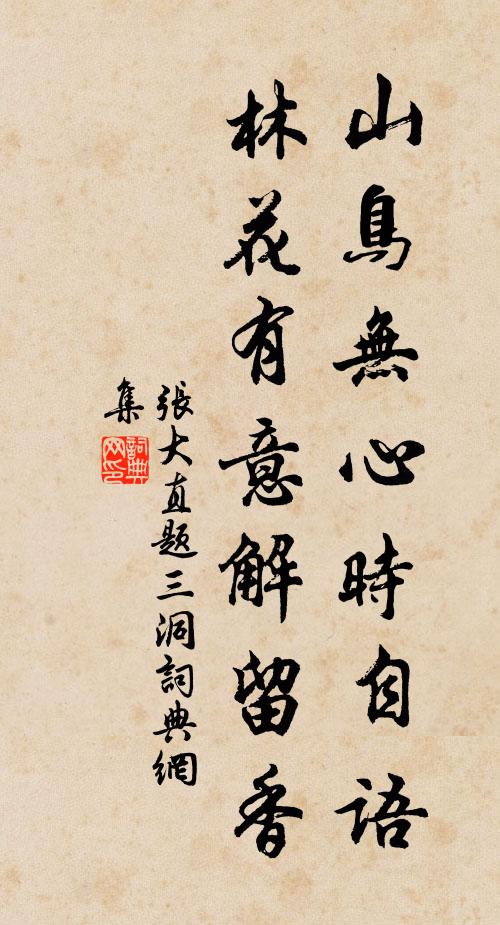 山鳥無心時自語
林花有意解留香
張大直題三洞詞典網
集
詞典
网印